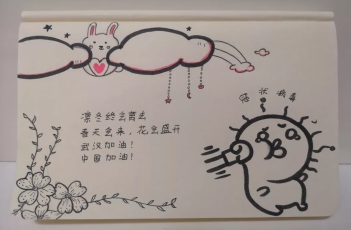 凛冬终会离去
春天会来，花会盛开
武汉加油！
中国加油！